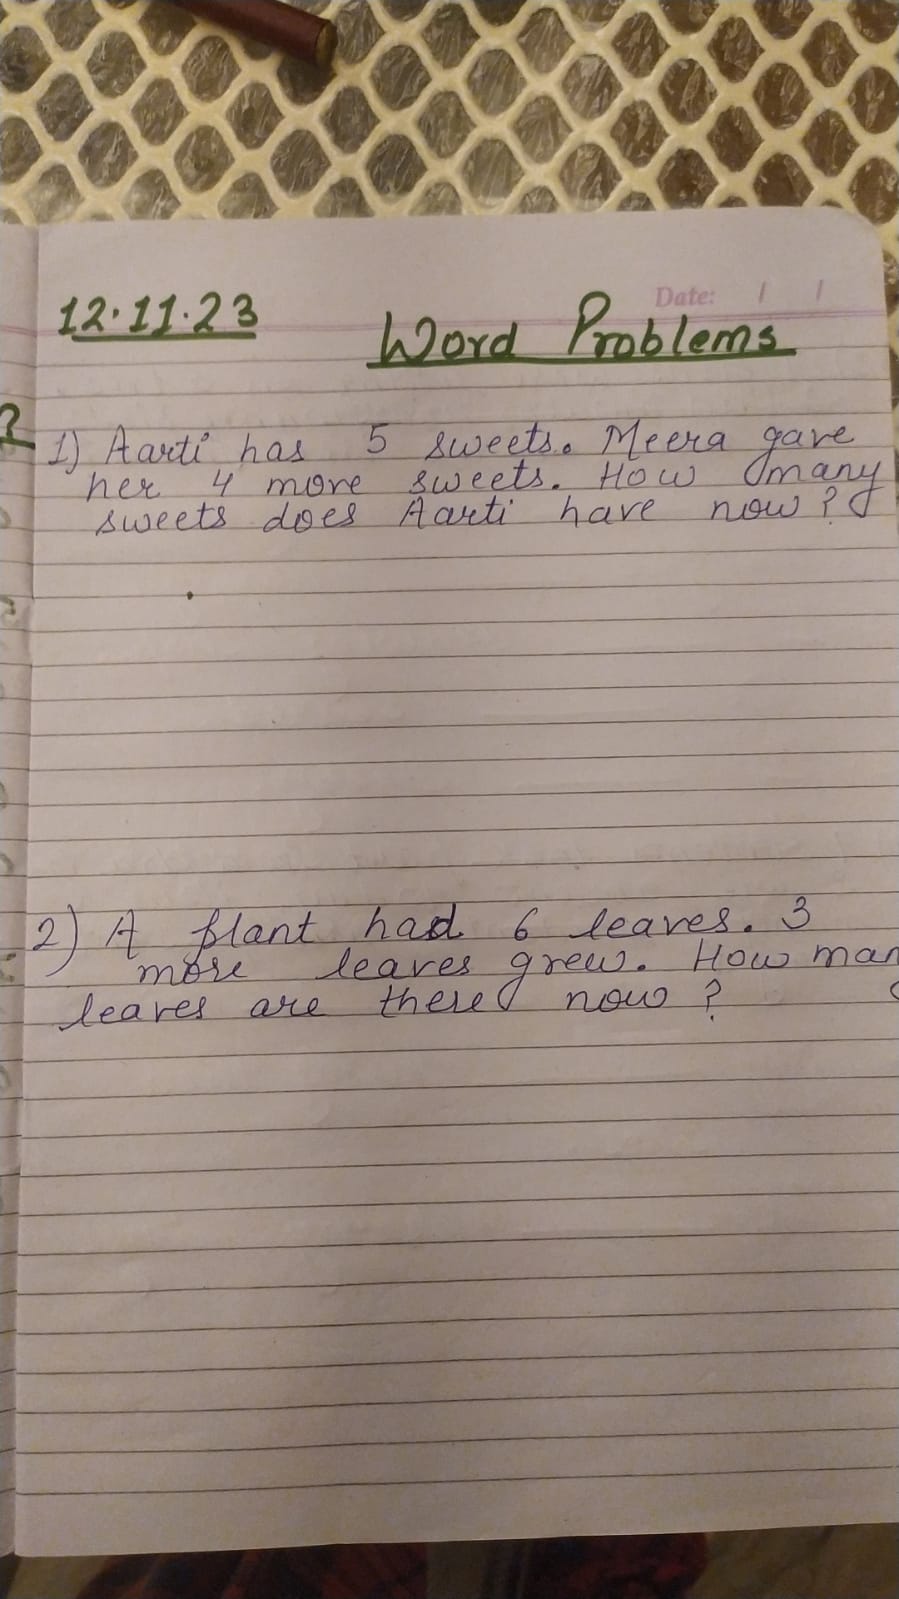 Date: / /
12.11.23 Word Problems
1) Aarti has 5 sweets. Meera gave
her 4 more sweets. How many
sweets does Aarti have now?
2) A plant had 6 leaves. 3
more leaves grew. How man
leaves are there now?